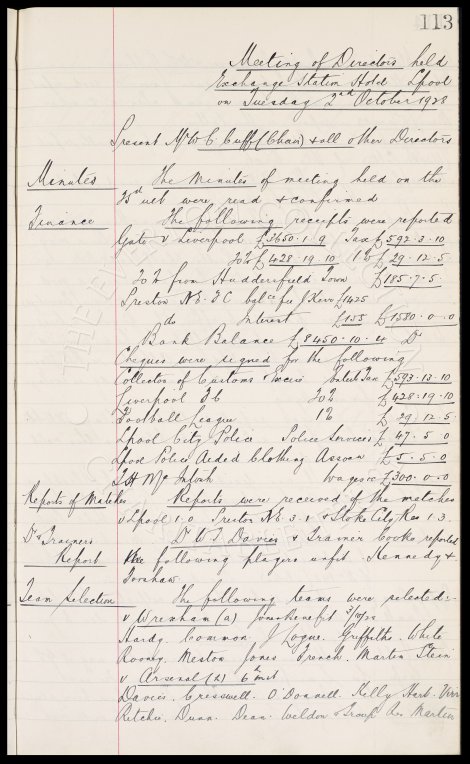 113
Meeting of Directors held
Exchange Station Hotel Lpool
on Tuesday 2nd October 1928
Present Mr W C Cuff (Chair) & all other Directors
Minutes The Minutes of meeting held on the
25th ult were read & confirmed
Finance The following receipts were reported
Gate v Liverpool £3650.1.9 Tax £592.3.10
20% £428.19.10 1% £29.12.5
20% from Huddersfield Town £185.7.5
Preston N.E. FC balce fee J Kerr £1425
do Interest £155 £1580.0.0
Bank Balance £8450.10.4 Dr
Cheques were signed for the following
Collector of Customs & Excise Entert Tax £593.13.10
Liverpool FC 20% £428.19.10
Football League 1% £29.12.5
Lpool City Police Police Services £47.5.0
Lpool Police Aided Clothing Assocn £5.5.0
McIntosh wages &c £300.0.0
Reports of Matches Reports were received of the matches
v Lpool 1.0 Preston N.E. 3.1 & Stoke City Res 1.3.
Drs & Trainers Dr W.J. Davies & Trainer Cooke reported
Report the following players unfit. Kennedy &
Team Selection The following teams were selected:-
v Wrexham (a) Benefit 3/10/28
Hardy. Common. J. Griffiths. White
Rooney. Meston. Jones. French. Martin. Stein
v Arsenal (h) 6th inst
Davies. Cresswell. O'Donnell. Kelly. Hart. Virr
Ritchie. Dunn. Dean. Weldon & Troup. Res Martin